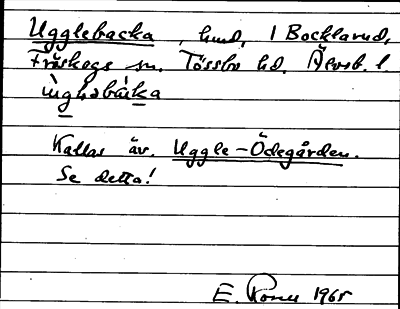 Ugglebacka, hmd, 1 Bocklarud,
Fröskogs sn. Tössbo hd. Älvsb. l
ùgḷəbàka
Kallas äv. Uggle-Ödegården.
Se detta!
E. 1965